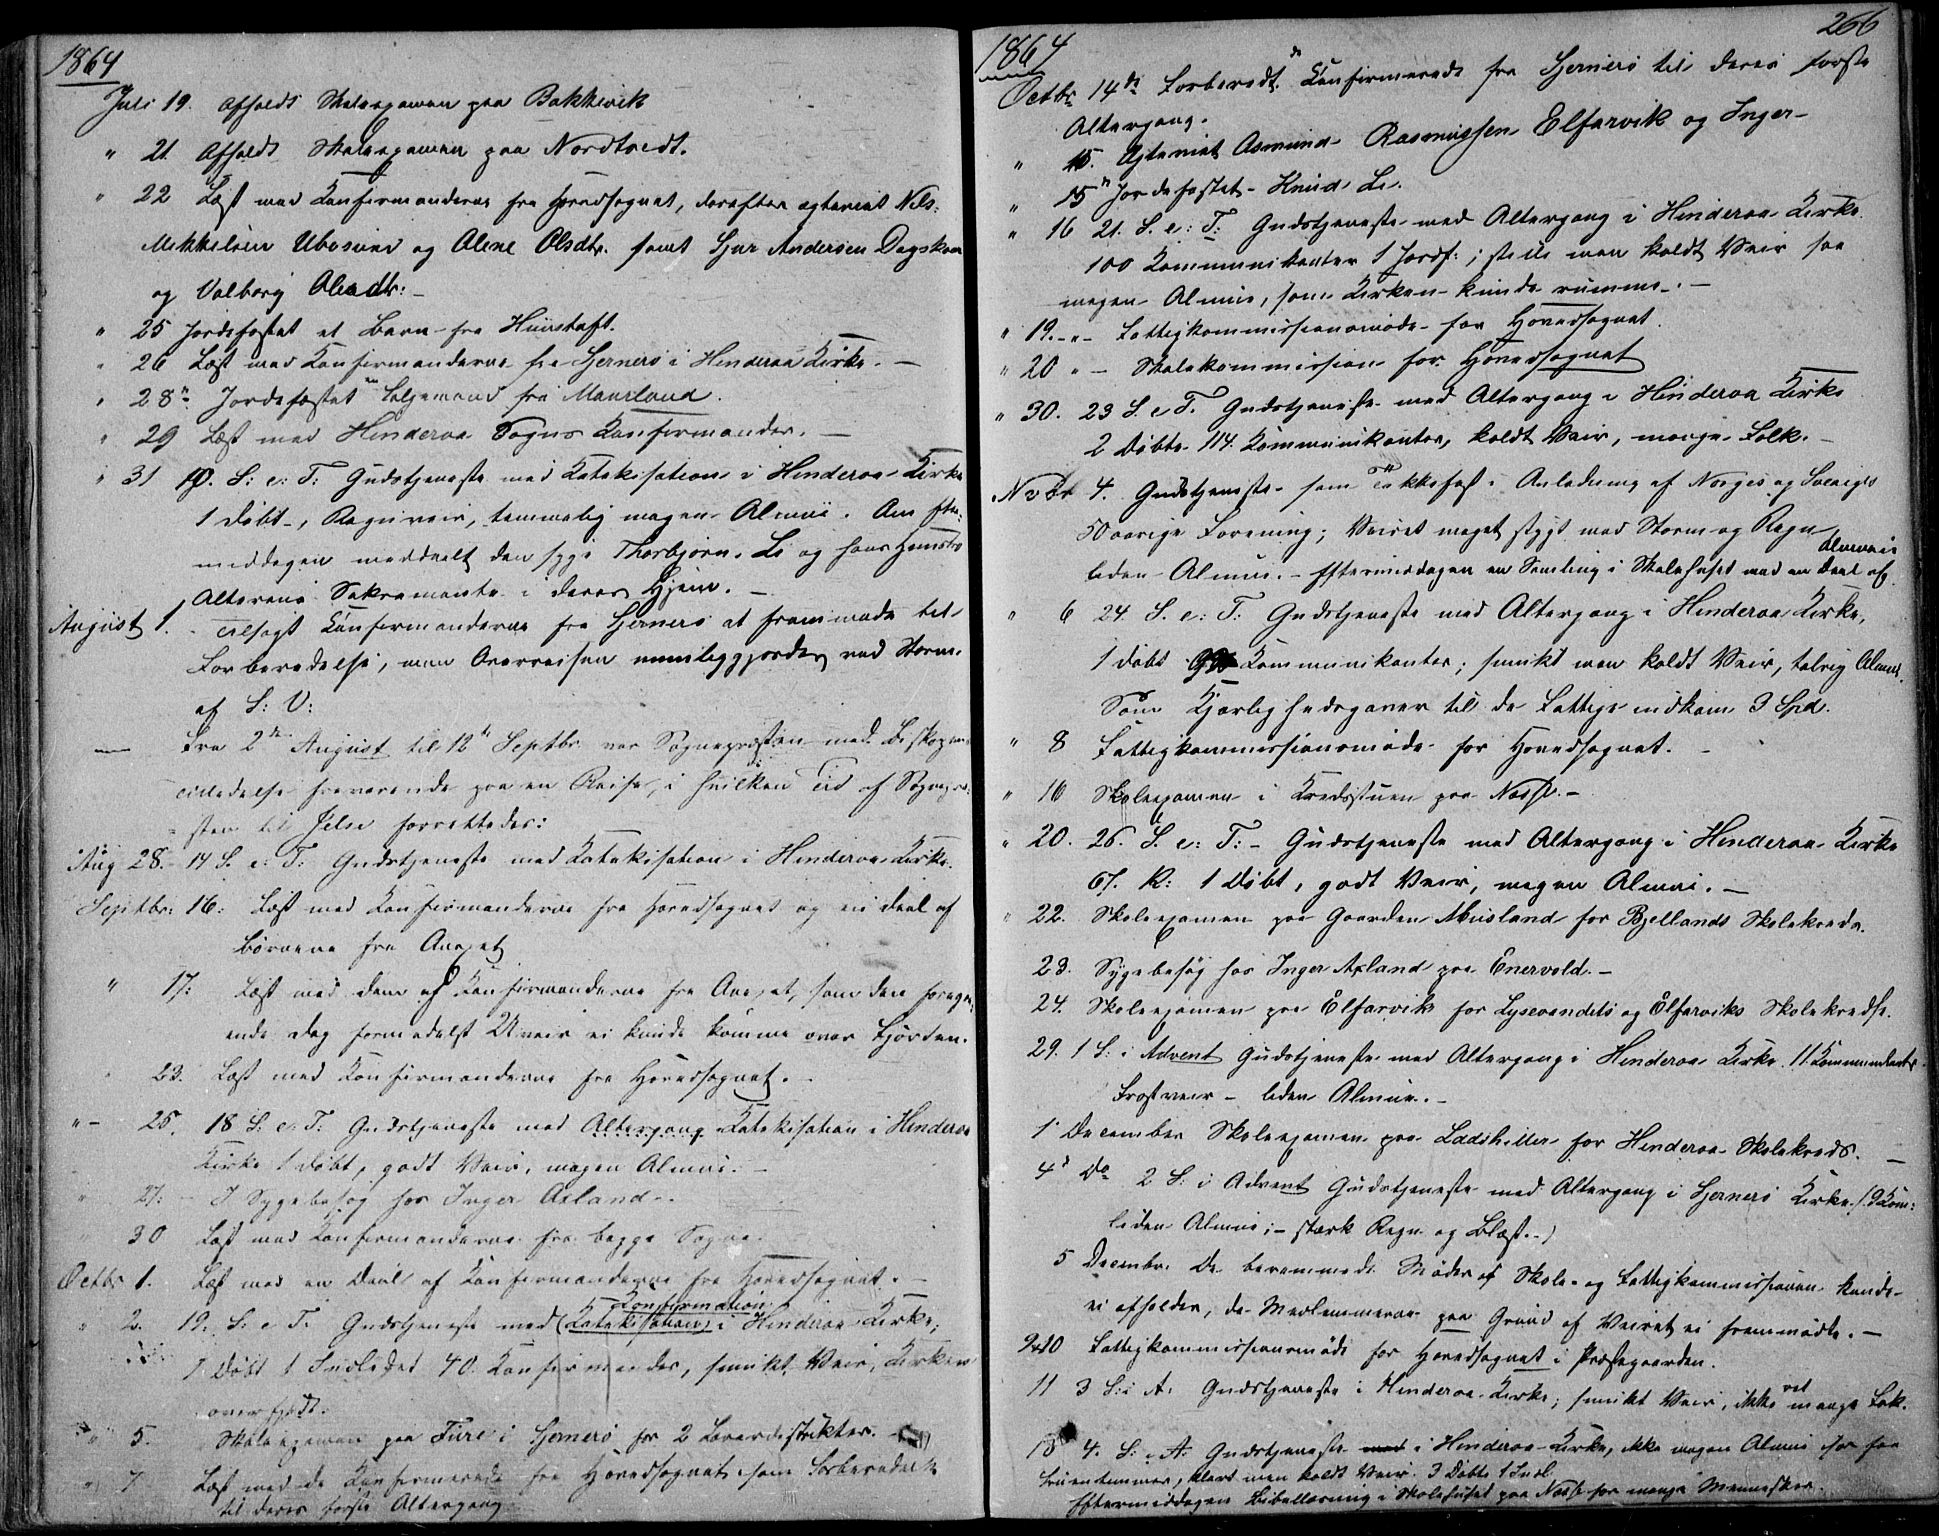 1864
Juli 19. Afholdt Skoleexamen paa Bakkevik
" 21. Afholdt Skoleexamen paa Nordtvedt.
" 22 Læst med Konfirmanderne fra Hovedsognet, derefter ægteviet Nils
Mikkelsen Ubøsund og Alene Olsdtr. samt Sjur Andersen Dagskar
og Valborg Olsdtr: –
" 25 Jordfæstet et Barn fra
" 26 Læst med Konfirmanderne fra Sjernerø i Hinderaa Kirke. –
" 28de Jordfæstet fra Mauland.
" 29 Læst med Hinderaa Sogns Konfirmander. –
" 31 10. S: e: T: Gudstjeneste med Katekisation i Hinderaa Kirke
1 døbt, Regnveir, temmelig megen Almue. Om Efter-
middagen meddeelt den syge Thorbjørn Li og hans Hustru
Alterens Sakramente i deres Hjem. –
August 1. Tilsagt Konfirmanderne fra Sjernerø at fremmøde til
Forberedelse, men Overreisen umuliggjordes ved Storm
af S: V:
– Fra 2den August til 12te Septbr var Sognepræsten med Biskopens
Tilladelse fraværende paa en Reise, i hvilken Tid af Sognepræ-
sten til Jelse forrettedes:
Aug 28. 14 S. e: T: Gudstjeneste med Katekisation i Hinderaa Kirke.
Septbr: 16: Læst med Konfirmanderne fra Hovedsognet og en Deel af
Børnene fra Annexet
" 17: Læst med dem af Konfirmanderne fra Annexet, som den foregaa-
ende Dag formedelst Uveir ei kunde komme over Fjorden.
" 23. Læst med Konfirmanderne fra Hovedsognet. –
" – 25. 18 S: e: T: Gudstjeneste med Altergang Katekisation i Hinderaa
Kirke 1 døbt, godt Veir, megen Almue. –
" 27: – I Sygebesøg hos Inger Axland.
" 30 Læst med Konfirmanderne fra begge Sogne.
Octbr 1. Læst med en Deel af Konfirmanderne fra Hovedsognet. –
Konfirmation
" 2. 19. S. e T. Gudstjeneste med (Katekisation) i Hinderaa Kirke;
1 Døbt 1 Indledet 40 Konfirmander, smukt Veir, Kirken
overfyldt.
" 5. Skoleexamen paa Fure i Sjernerø for 2 Lærerdistrikter. –
" 7 Læst med de Konfirmerede fra Hovedsognet som Forberedelse
til deres første Altergang
266
1864
Octbr 14de Forberedt de Konfirmerede fra Sjernerø til deres første
Altergang.
" 15. Ægteviet Asmund Rasmussen Elfarvik og Inger
" 15de Jordfæstet Knud Li.
" 16 21. S. e: T: Gudstjeneste med Altergang i Hinderaa Kirke.
100 Kommunikanter 1 Jordf: ; stille men koldt Veir saa
megen Almue, som Kirken kunde rumme. –
" 19. – " – Fattigkommissionsmøde for Hovedsognet.
" 20 " – Skolekommission for Hovedsognet
" 30. 23 S. e T. Gudstjeneste med Altergang i Hinderaa Kirke
2 Døbte 114 Kommunikanter, koldt Veir, mange Folk. –
Novbr 4. Gudstjeneste som Takkefest i Anledning af Norges og Sveriges
50 aarige Forening; Veiret meget stygt med Storm og Regn
liden Almue. – Eftermiddagen en Samling i Skolehuset med en Deel af
Almuen
" 6 24 S. e: T: Gudstjeneste med Altergang i Hinderaa Kirke,
1 døbt Kommunikanter; smukt men koldt Veir, talrig Almue.
Som Kjærlighedsgaver til de Fattige indkom 3 Spd.
" 8 Fattigkommissionsmøde for Hovedsognet. –
" 16 Skoleexamen i Kredsstuen paa Næsse. –
" 20. 26. S. e: T: – Gudstjeneste med Altergang i Hinderaa Kirke
67. K: 1 Døbt, godt Veir, megen Almue. –
" 22. Skoleexamen paa Gaarden Musland for Bjellands Skolekreds.
23. Sygebesøg hos Inger Axland paa Enervold. –
24. Skoleexamen paa Elfarvik for Lysevandets og Elfarviks Skolekredse.
29. 1 S: i Advent Gudstjeneste med Altergang i Hinderaa Kirke. 11 Kommunikanter.
Frostveir – liden Almue. –
1 December Skoleexamen paa Ladehiller for Hinderaa Skolekreds. –
4de Do 2 S: i Advent Gudstjeneste med Altergang i Sjernerø Kirke. (9 Kom:
liden Almue; – stærk Regn og Blæst. –)
5 Decembr. De berammede Møder af Skole- og Fattigkommissionen kunde
ei afholdes, da Medlemmerne paa Grund af Veiret ei fremmødte. –
Fattigkommissionsmøde for Hovedsognet i Præstegaarden.
11 3 S: i A: Gudstjeneste i Hinderaa Kirke; smukt Veir, ikke ret mange Folk.
18 4. S: i A: Gudstjeneste med i Hinderaa Kirke, ikke megen Almue for faa
Fruentimmer, klart men koldt Veir. 3 Døbte 1 Indl.
Eftermiddagen Bibellæsning i Skolehuset paa Næsse for mange Mennesker.